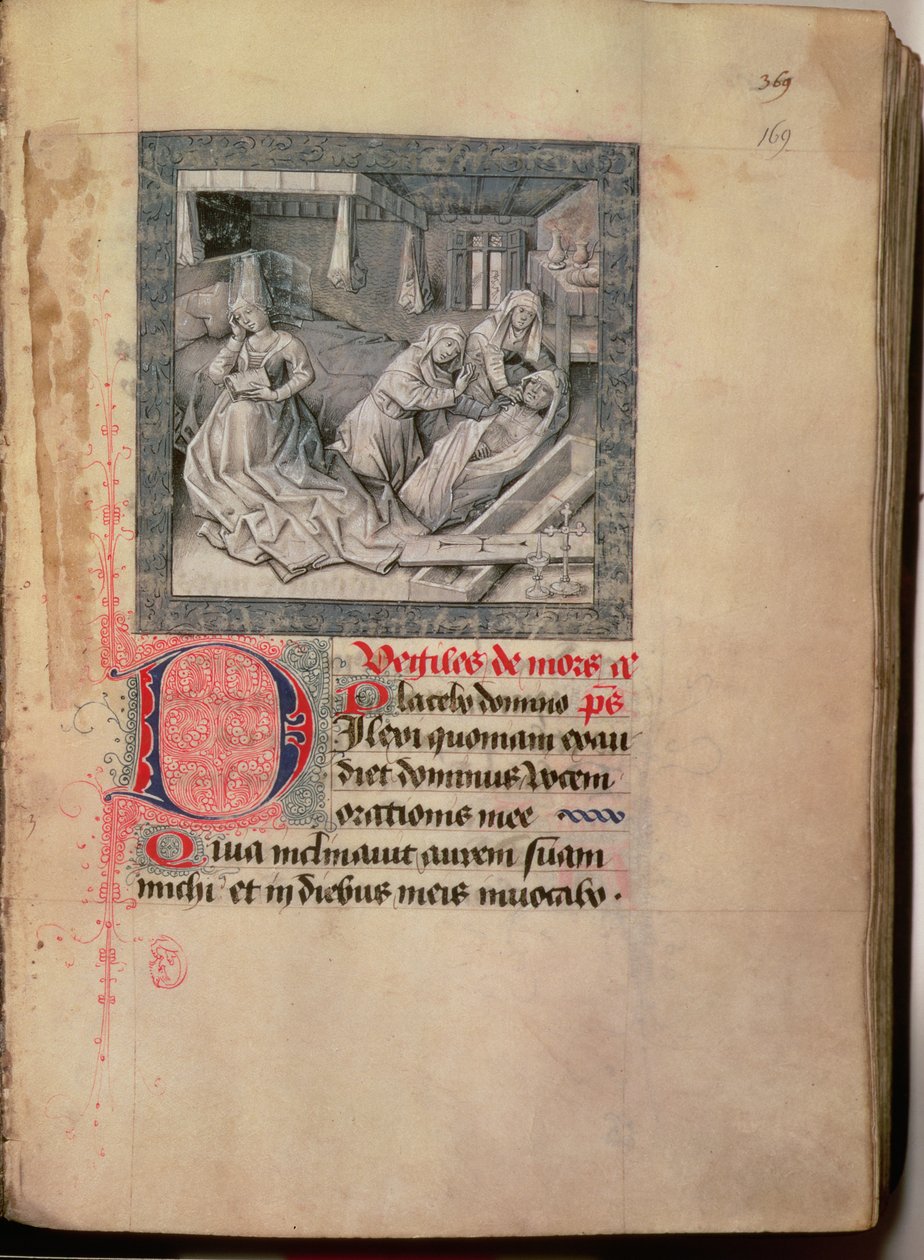 369
169
Vegiles de mors a
Placebo domino ps
Dilexi quoniam exau
diet dominus vocem
orationis mee
Quia inclinauit aurem suam
michi et in diebus meis inuocabo.